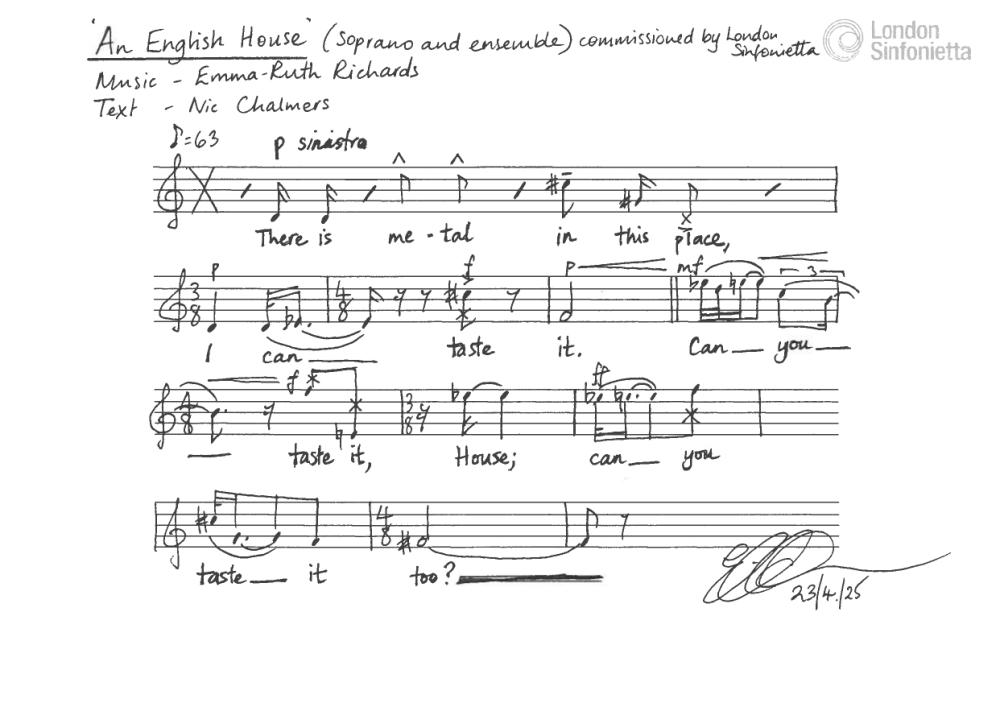 'An English House' (Soprano and ensemble) commissioned by London Sinfonietta
London Sinfonietta
Music - Emma-Ruth Richards
Text - Nic Chalmers
♪=63 p sinistro
There is me-tal in this place,
p f p mf 3
3/8 4/8
I can taste it. Can you
f ff
4/8 3/8
taste it, House; can you
4/8
taste it too?
23/4/25